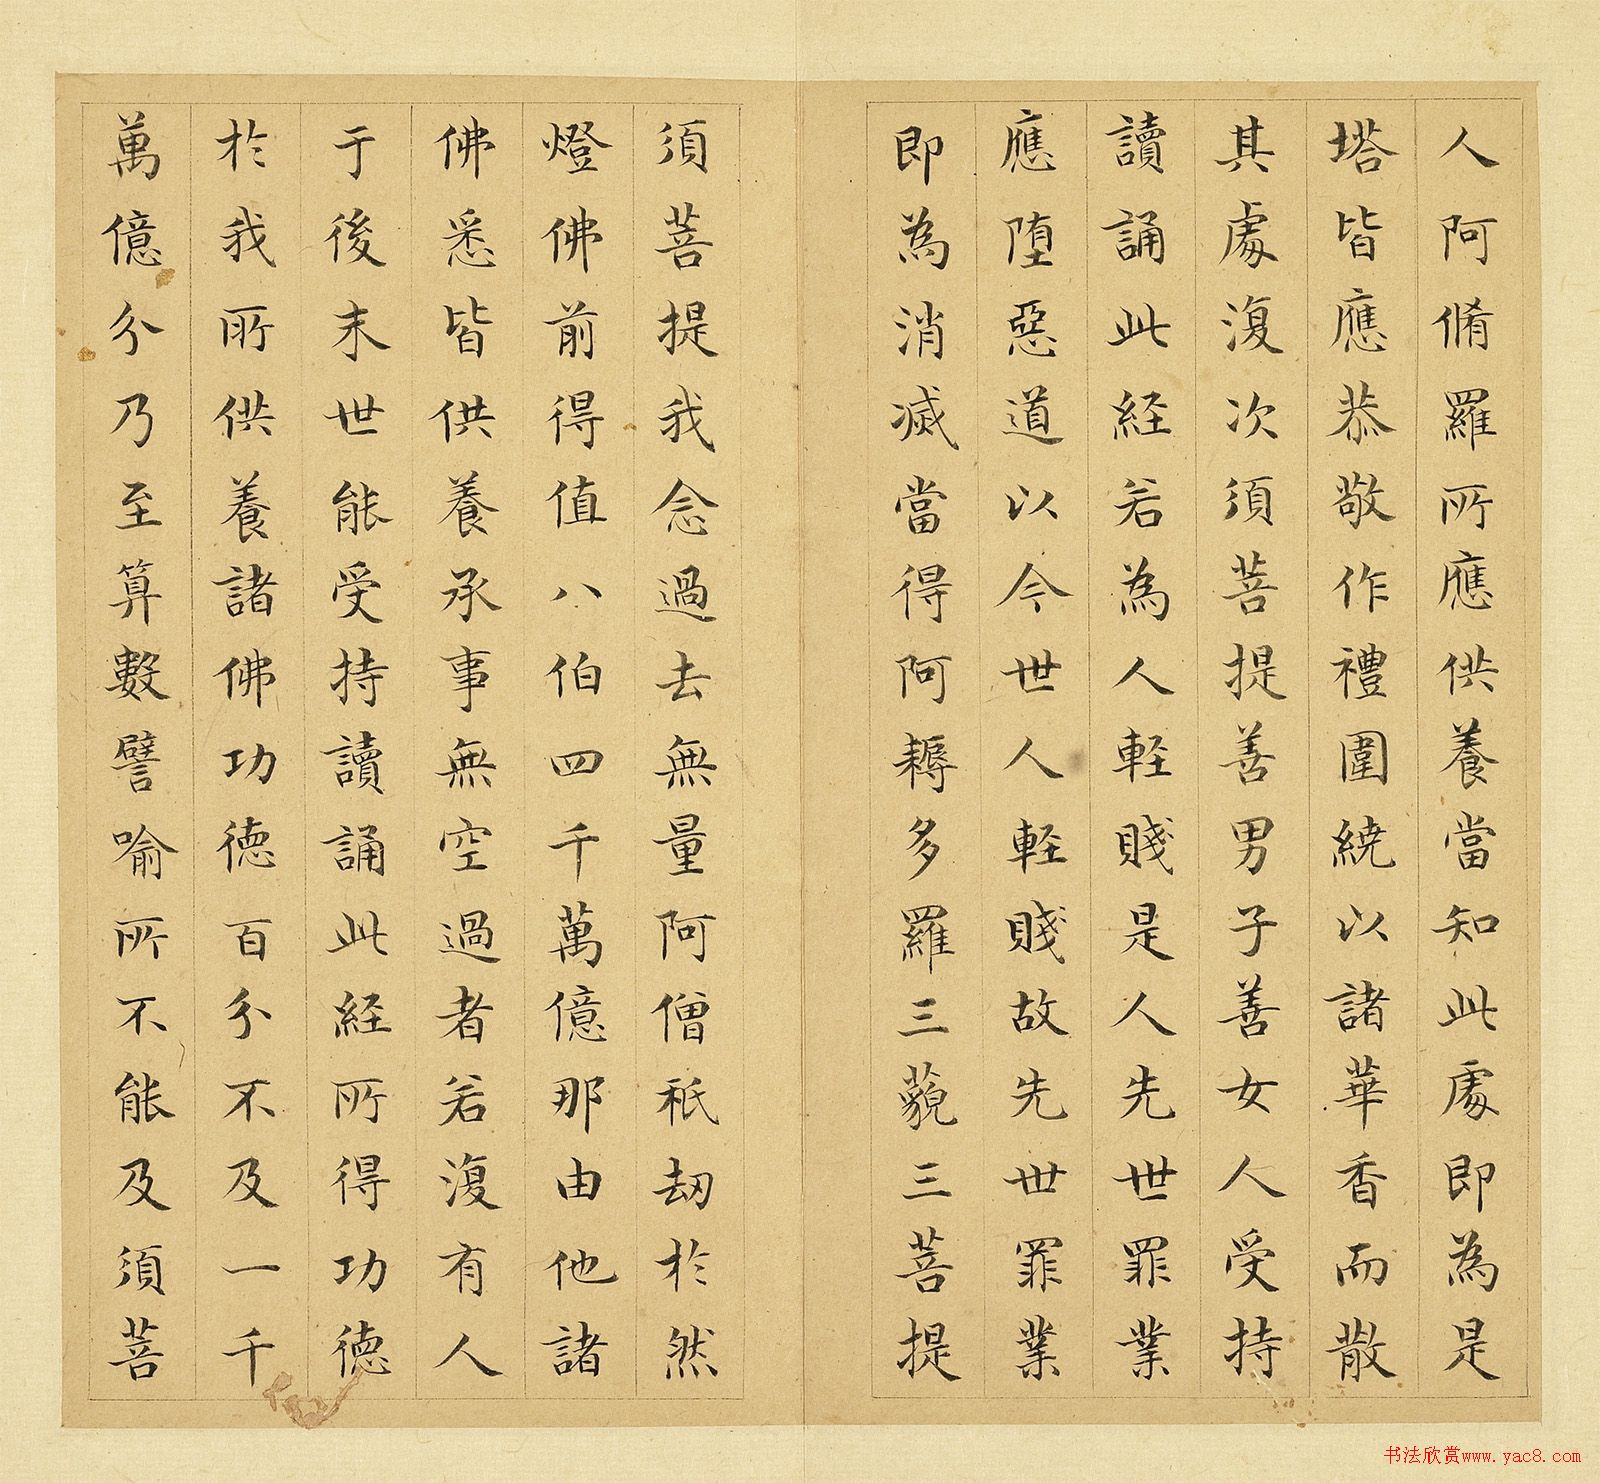 人阿脩羅所應供養當知此處即為是
塔皆應恭敬作禮圍繞以諸華香而散
其處復次須菩提善男子善女人受持
讀誦此経若為人軽賤是人先世罪業
應墮惡道以今世人軽賤故先世罪業
即為消滅當得阿耨多羅三藐三菩提
須菩提我念過去無量阿僧祇劫於然
燈佛前得值八伯四千萬億那由他諸
佛悉皆供養承事無空過者若復有人
于後末世能受持讀誦此経所得功德
於我所供養諸佛功德百分不及一千
萬億分乃至算數譬喻所不能及須菩
书法欣赏www.yac8.com